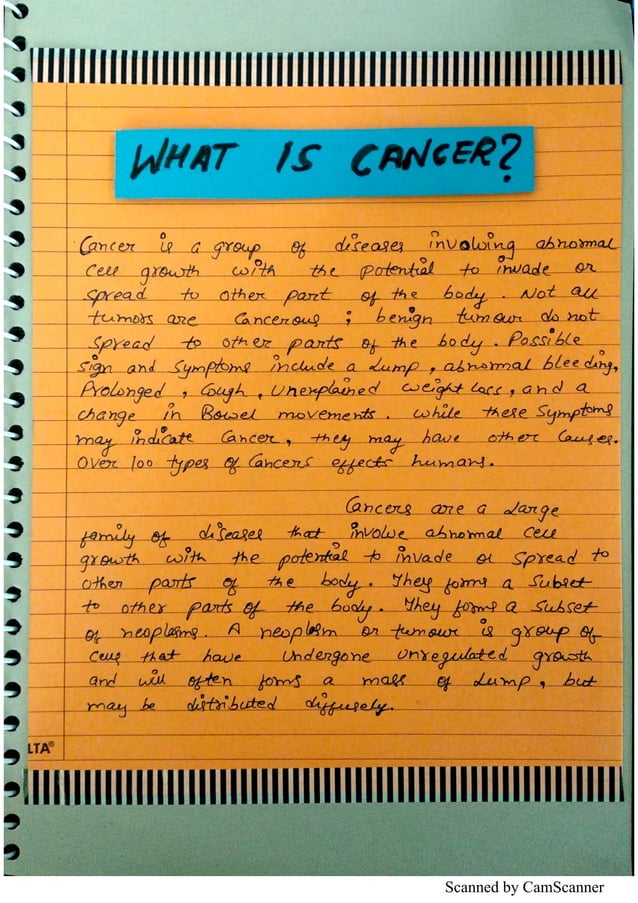 WHAT IS CANCER?
Cancer is a group of diseases involving abnormal
cell growth with the potential to invade or
spread to other part of the body. Not all
tumors are cancerous ; benign tumour do not
spread to other parts of the body. Possible
sign and symptoms include a lump, abnormal bleeding,
Prolonged, Cough, Unexplained weight loss, and a
change in Bowel movements. While these symptoms
may indicate Cancer, they may have other causes.
Over 100 types of Cancers effects humans.
Cancers are a large
family of diseases that involve abnormal cell
growth with the potential to invade or spread to
other parts of the body. They forms a Subset
to other parts of the body. They forms a Subset
of neoplasms. A neoplasm or tumour is group of
cells that have undergone unregulated growth
and will often forms a mass of lump, but
may be distributed diffusely.
LTA®
Scanned by CamScanner